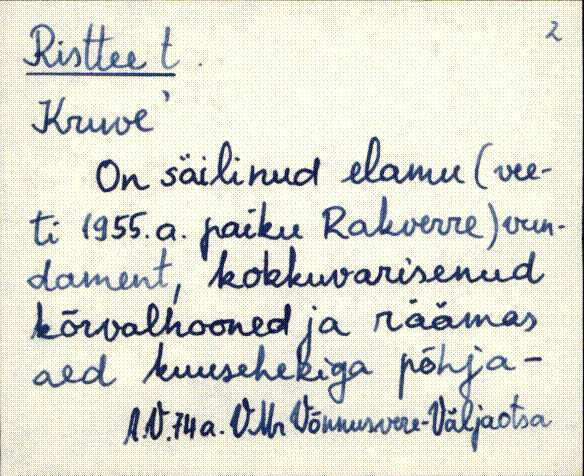 2
Risttee t.
Kruve'
On säilinud elamu (vee-
ti 1955.a. paiku Rakverre) vun-
dament, kokkuvarisenud
kõrvalhooned ja räämas
aed kuusehekiga põhja-
A.V. 74 a. VMr Võnnusvere-Väljaotsa